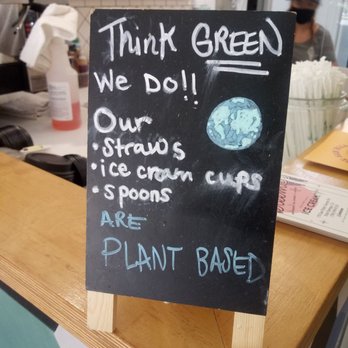 Think GREEN
We Do!!
Our
• straws
• ice cream cups
• spoons
ARE
PLANT BASED
ICE CREAM